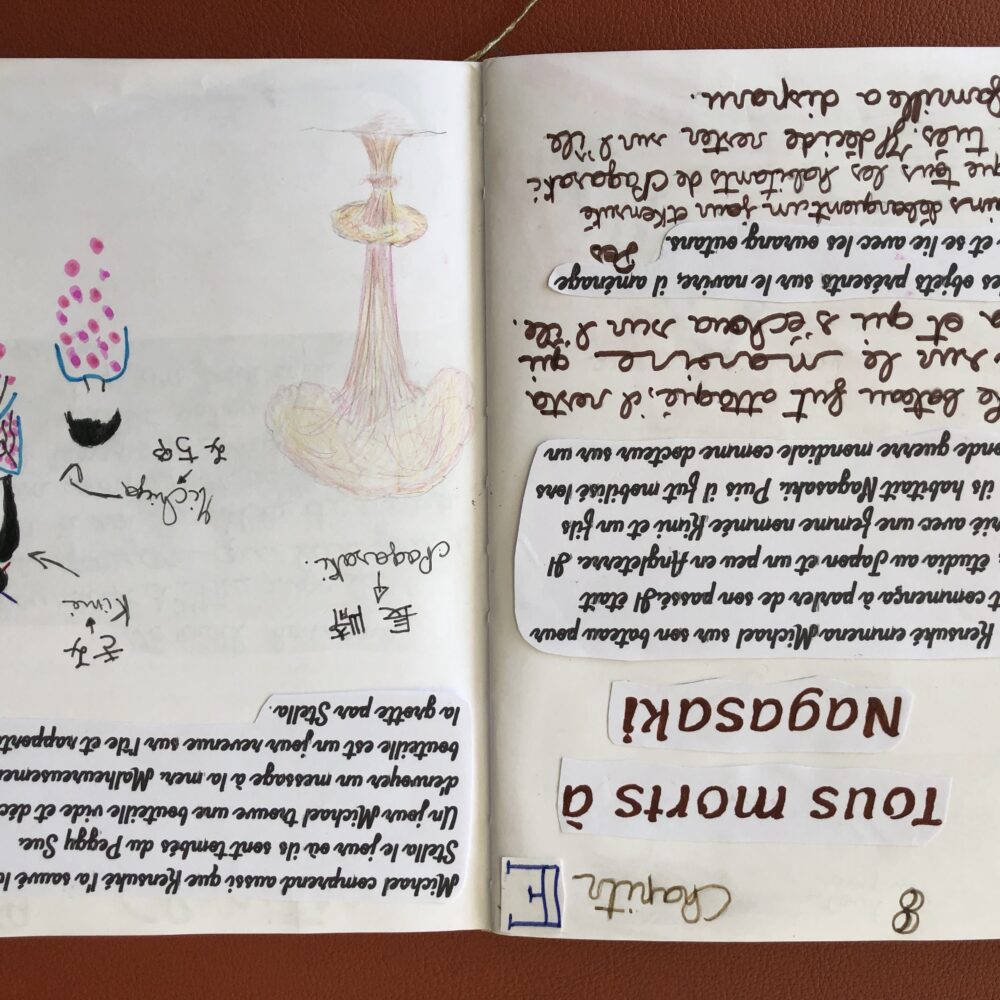 8 Chapitr E
Tous morts à
Nagasaki
Kensuké emmena Michael sur son bateau pour
t commença à parler de son passé. Il était
étudia au Japon et un peu en Angleterre. Il
rié avec une femme nommée Kimi et un fils
ils habitait Nagasaki. Puis il fut mobilisé lors
onde guerre mondiale comme docteur sur un
le bateau fut attaqué, il resta
sur le qui
et qui s'échoua sur l'île.
es objets présents sur le navire, il aménage
et se lie avec les ourang outans. Des
ains débarquent un jour et Kensuké
que tous les habitants de Nagasaki
tués. Il décide rester sur l'île
famille a disparu.
Michael comprend aussi que Kensuké l'a sauvé
Stella le jour où ils sont tombés du Peggy Sue.
Un jour Michael trouve une bouteille vide et déc
d'envoyer un message à la mer. Malheureusemen
bouteille est un jour revenue sur l'île et rapporté
la grotte par Stella.
長崎
Nagasaki.
きみ
Kimi
Michiya
みちや